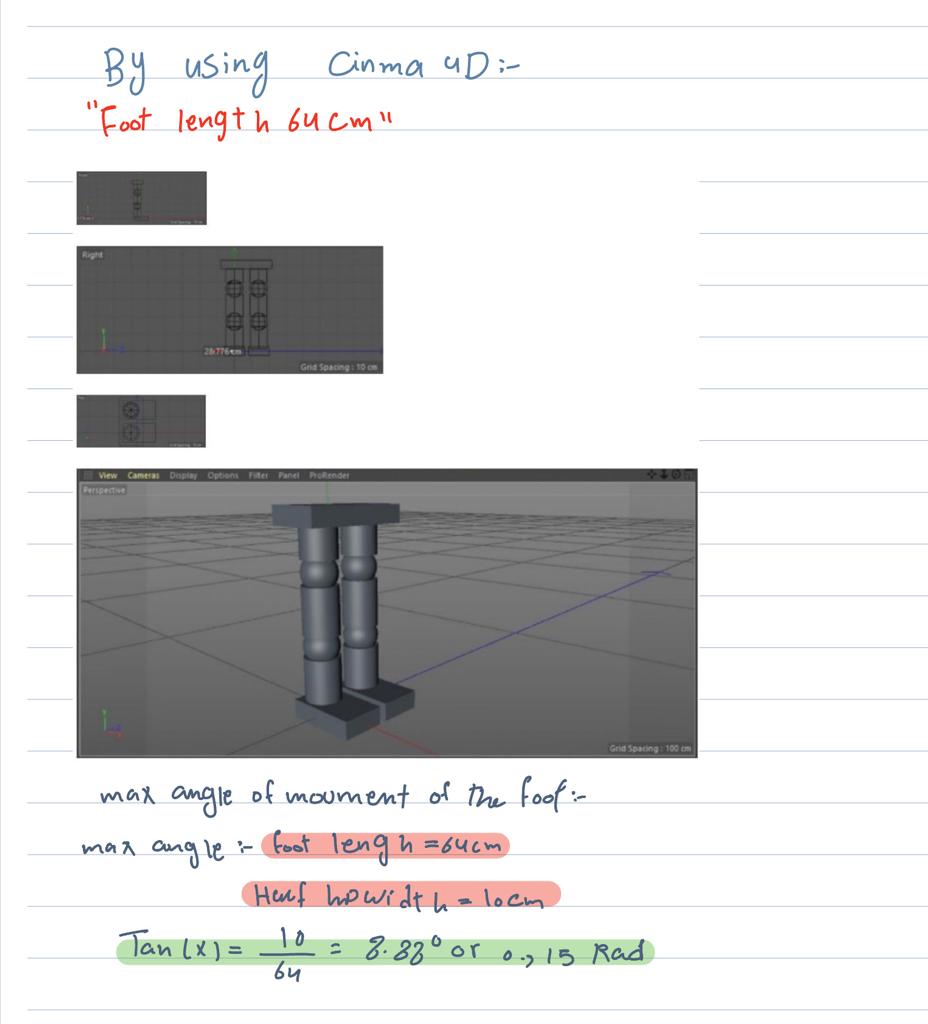 By using Cinma 4D:-
"Foot length 64 cm"
Right
28.776 cm
Grid Spacing : 10 cm
View Cameras Display Options Filter Panel ProRender
Perspective
Grid Spacing : 100 cm
max angle of moument of the foot:-
max angle :- foot lengh = 64cm
Half hp width = 10cm
Tan(x) = 10/64 = 8.88° or 0.,15 Rad